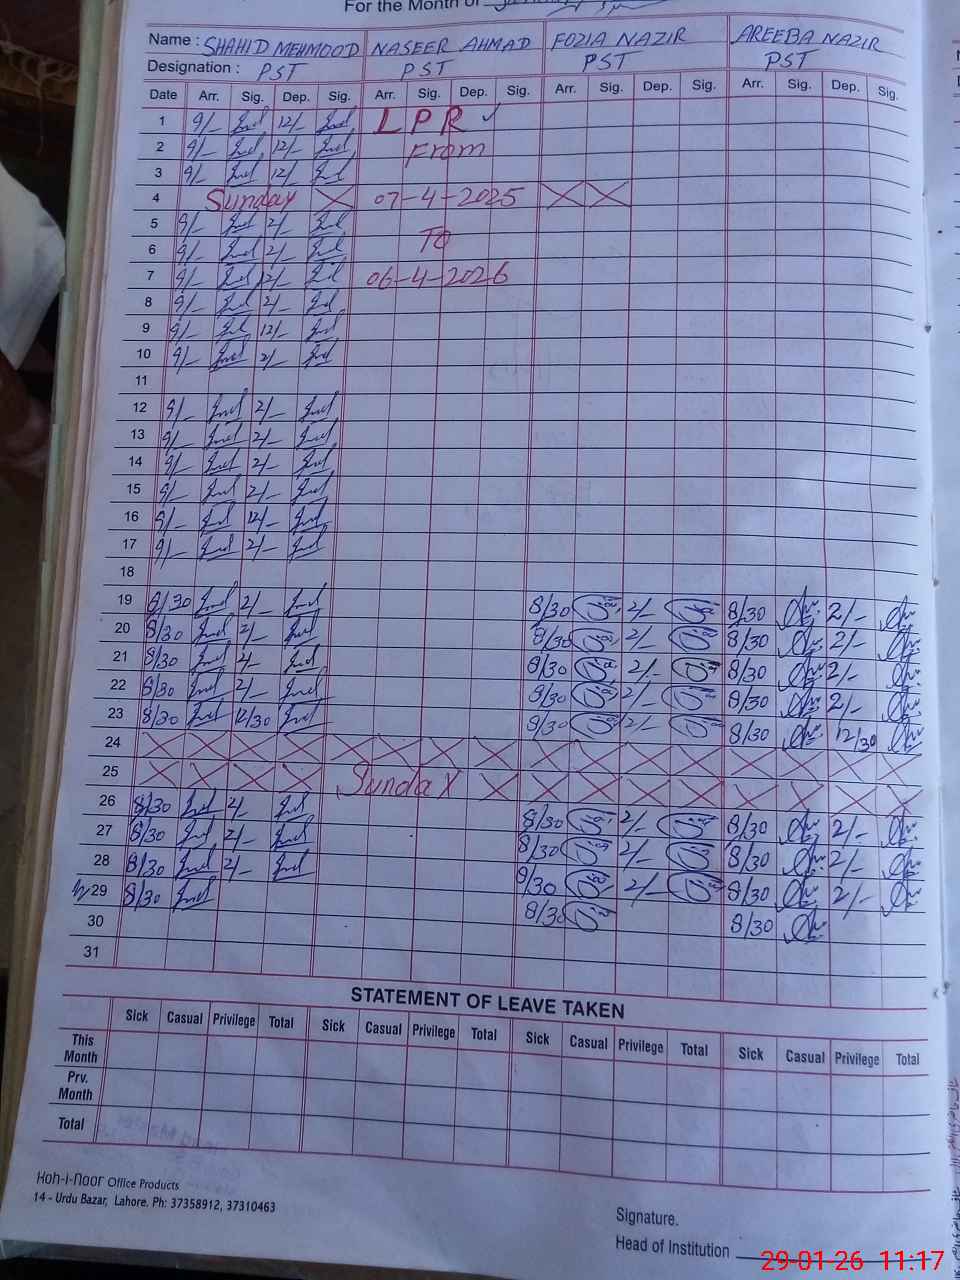 For the Month of
Name : SHAHID MEHMOOD NASEER AHMAD FOZIA NAZIR AREEBA NAZIR
Designation : PST PST PST PST
Date Arr. Sig. Dep. Sig. Arr. Sig. Dep. Sig. Arr. Sig. Dep. Sig. Arr. Sig. Dep. Sig.
1 9/- 12/- L P R
2 9/- 12/- From
3 9/- 12/-
4 Sunday 07-4-2025
5 9/- 2/-
6 9/- 2/- To
7 9/- 2/- 06-4-2026
8 9/- 2/-
9 9/- 12/-
10 9/- 2/-
11
12 9/- 2/-
13 9/- 2/-
14 9/- 2/-
15 9/- 2/-
16 9/- 12/-
17 9/- 2/-
18
19 8/30 2/- 8/30 2/- 8/30 2/-
20 8/30 2/- 8/30 2/- 8/30 2/-
21 8/30 2/- 8/30 2/- 8/30 2/-
22 8/30 2/- 8/30 2/- 8/30 2/-
23 8/30 12/30 8/30 2/- 8/30 12/30
24
25 Sunday
26 8/30 2/- 8/30 2/- 8/30 2/-
27 8/30 2/- 8/30 2/- 8/30 2/-
28 8/30 2/- 8/30 2/- 8/30 2/-
29 8/30 8/30 8/30
30
31
STATEMENT OF LEAVE TAKEN
Sick Casual Privilege Total Sick Casual Privilege Total Sick Casual Privilege Total Sick Casual Privilege Total
This Month
Prv. Month
Total
Koh-i-Noor Office Products
14 - Urdu Bazar, Lahore. Ph: 37358912, 37310463
Signature.
Head of Institution
29-01-26 11:17